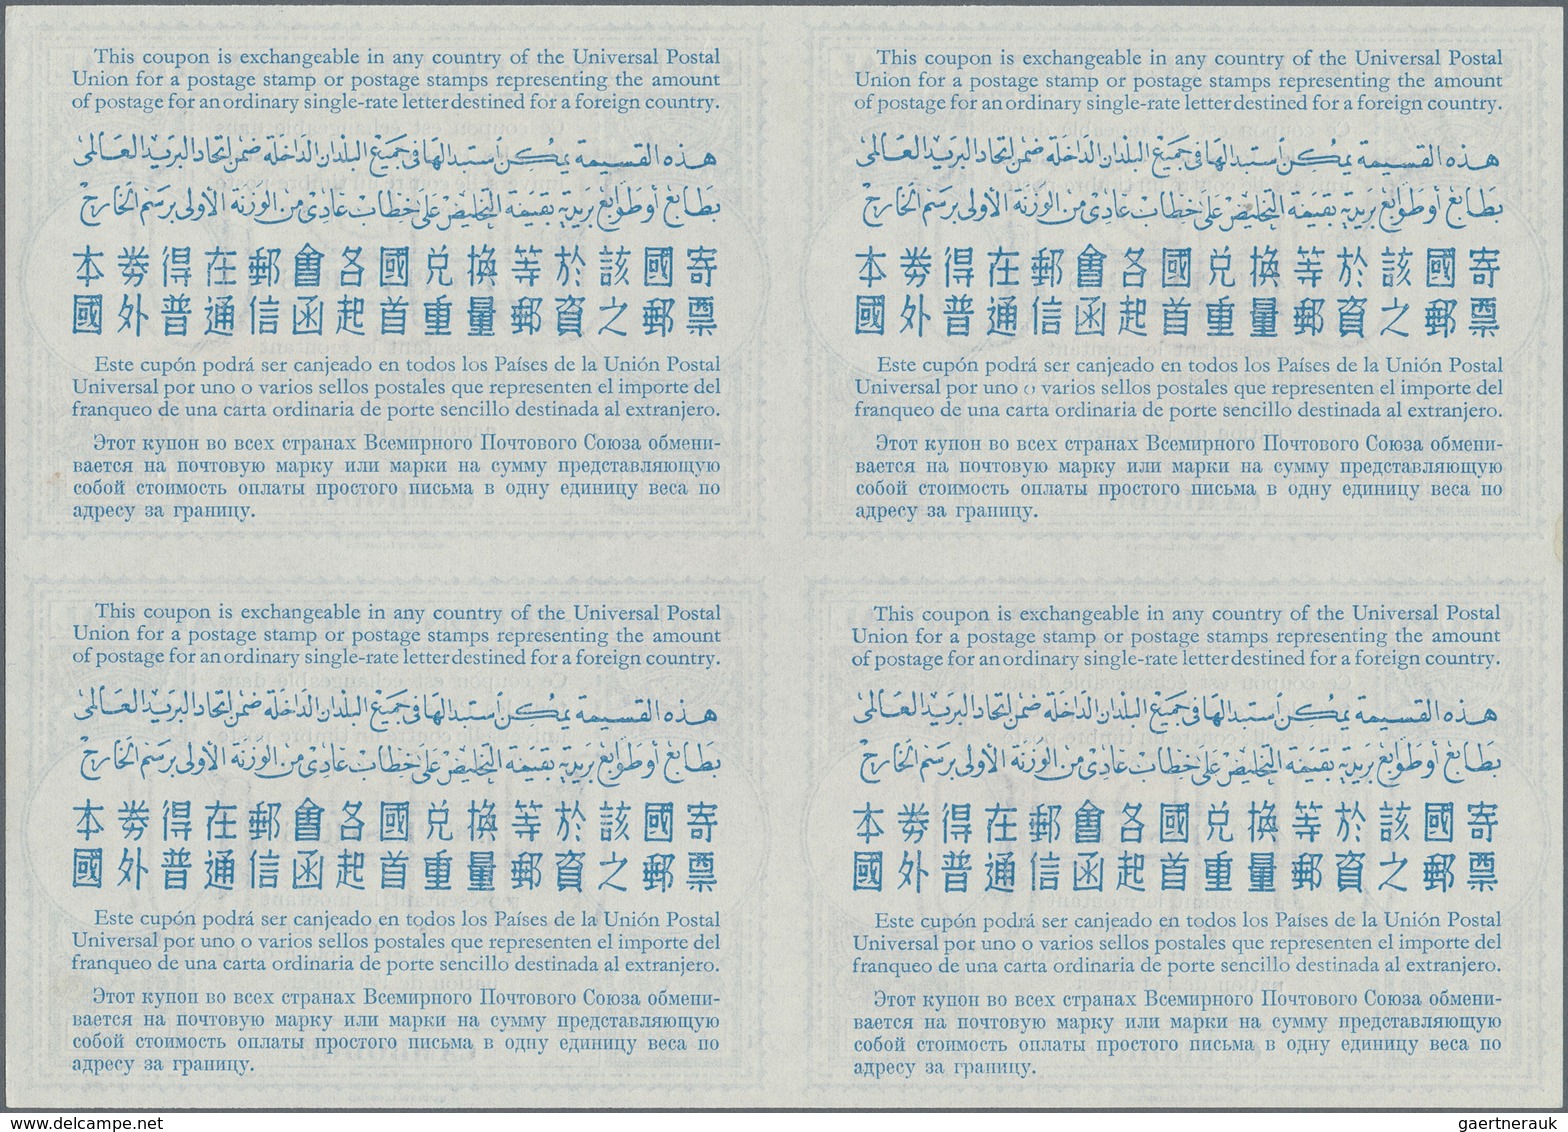 This coupon is exchangeable in any country of the Universal Postal
Union for a postage stamp or postage stamps representing the amount
of postage for an ordinary single-rate letter destined for a foreign country.
هذه القسيمة يمكن استبدالها في جميع البلدان الداخلة ضمن اتحاد البريد العالمى
بطابع أو طوابع بريدية بقيمة التخليص على خطاب عادى من الوزنة الأولى برسم الخارج
本券得在郵會各國兌換等於該國寄
國外普通信函起首重量郵資之郵票
Este cupón podrá ser canjeado en todos los Países de la Unión Postal
Universal por uno o varios sellos postales que representen el importe del
franqueo de una carta ordinaria de porte sencillo destinada al extranjero.
Этот купон во всех странах Всемирного Почтового Союза обмени-
вается на почтовую марку или марки на сумму представляющую
собой стоимость оплаты простого письма в одну единицу веса по
адресу за границу.
This coupon is exchangeable in any country of the Universal Postal
Union for a postage stamp or postage stamps representing the amount
of postage for an ordinary single-rate letter destined for a foreign country.
هذه القسيمة يمكن استبدالها في جميع البلدان الداخلة ضمن اتحاد البريد العالمى
بطابع أو طوابع بريدية بقيمة التخليص على خطاب عادى من الوزنة الأولى برسم الخارج
本券得在郵會各國兌換等於該國寄
國外普通信函起首重量郵資之郵票
Este cupón podrá ser canjeado en todos los Países de la Unión Postal
Universal por uno o varios sellos postales que representen el importe del
franqueo de una carta ordinaria de porte sencillo destinada al extranjero.
Этот купон во всех странах Всемирного Почтового Союза обмени-
вается на почтовую марку или марки на сумму представляющую
собой стоимость оплаты простого письма в одну единицу веса по
адресу за границу.
This coupon is exchangeable in any country of the Universal Postal
Union for a postage stamp or postage stamps representing the amount
of postage for an ordinary single-rate letter destined for a foreign country.
هذه القسيمة يمكن استبدالها في جميع البلدان الداخلة ضمن اتحاد البريد العالمى
بطابع أو طوابع بريدية بقيمة التخليص على خطاب عادى من الوزنة الأولى برسم الخارج
本券得在郵會各國兌換等於該國寄
國外普通信函起首重量郵資之郵票
Este cupón podrá ser canjeado en todos los Países de la Unión Postal
Universal por uno o varios sellos postales que representen el importe del
franqueo de una carta ordinaria de porte sencillo destinada al extranjero.
Этот купон во всех странах Всемирного Почтового Союза обмени-
вается на почтовую марку или марки на сумму представляющую
собой стоимость оплаты простого письма в одну единицу веса по
адресу за границу.
This coupon is exchangeable in any country of the Universal Postal
Union for a postage stamp or postage stamps representing the amount
of postage for an ordinary single-rate letter destined for a foreign country.
هذه القسيمة يمكن استبدالها في جميع البلدان الداخلة ضمن اتحاد البريد العالمى
بطابع أو طوابع بريدية بقيمة التخليص على خطاب عادى من الوزنة الأولى برسم الخارج
本券得在郵會各國兌換等於該國寄
國外普通信函起首重量郵資之郵票
Este cupón podrá ser canjeado en todos los Países de la Unión Postal
Universal por uno o varios sellos postales que representen el importe del
franqueo de una carta ordinaria de porte sencillo destinada al extranjero.
Этот купон во всех странах Всемирного Почтового Союза обмени-
вается на почтовую марку или марки на сумму представляющую
собой стоимость оплаты простого письма в одну единицу веса по
адресу за границу.
Visit www.delcampe.net
gaertnerauk